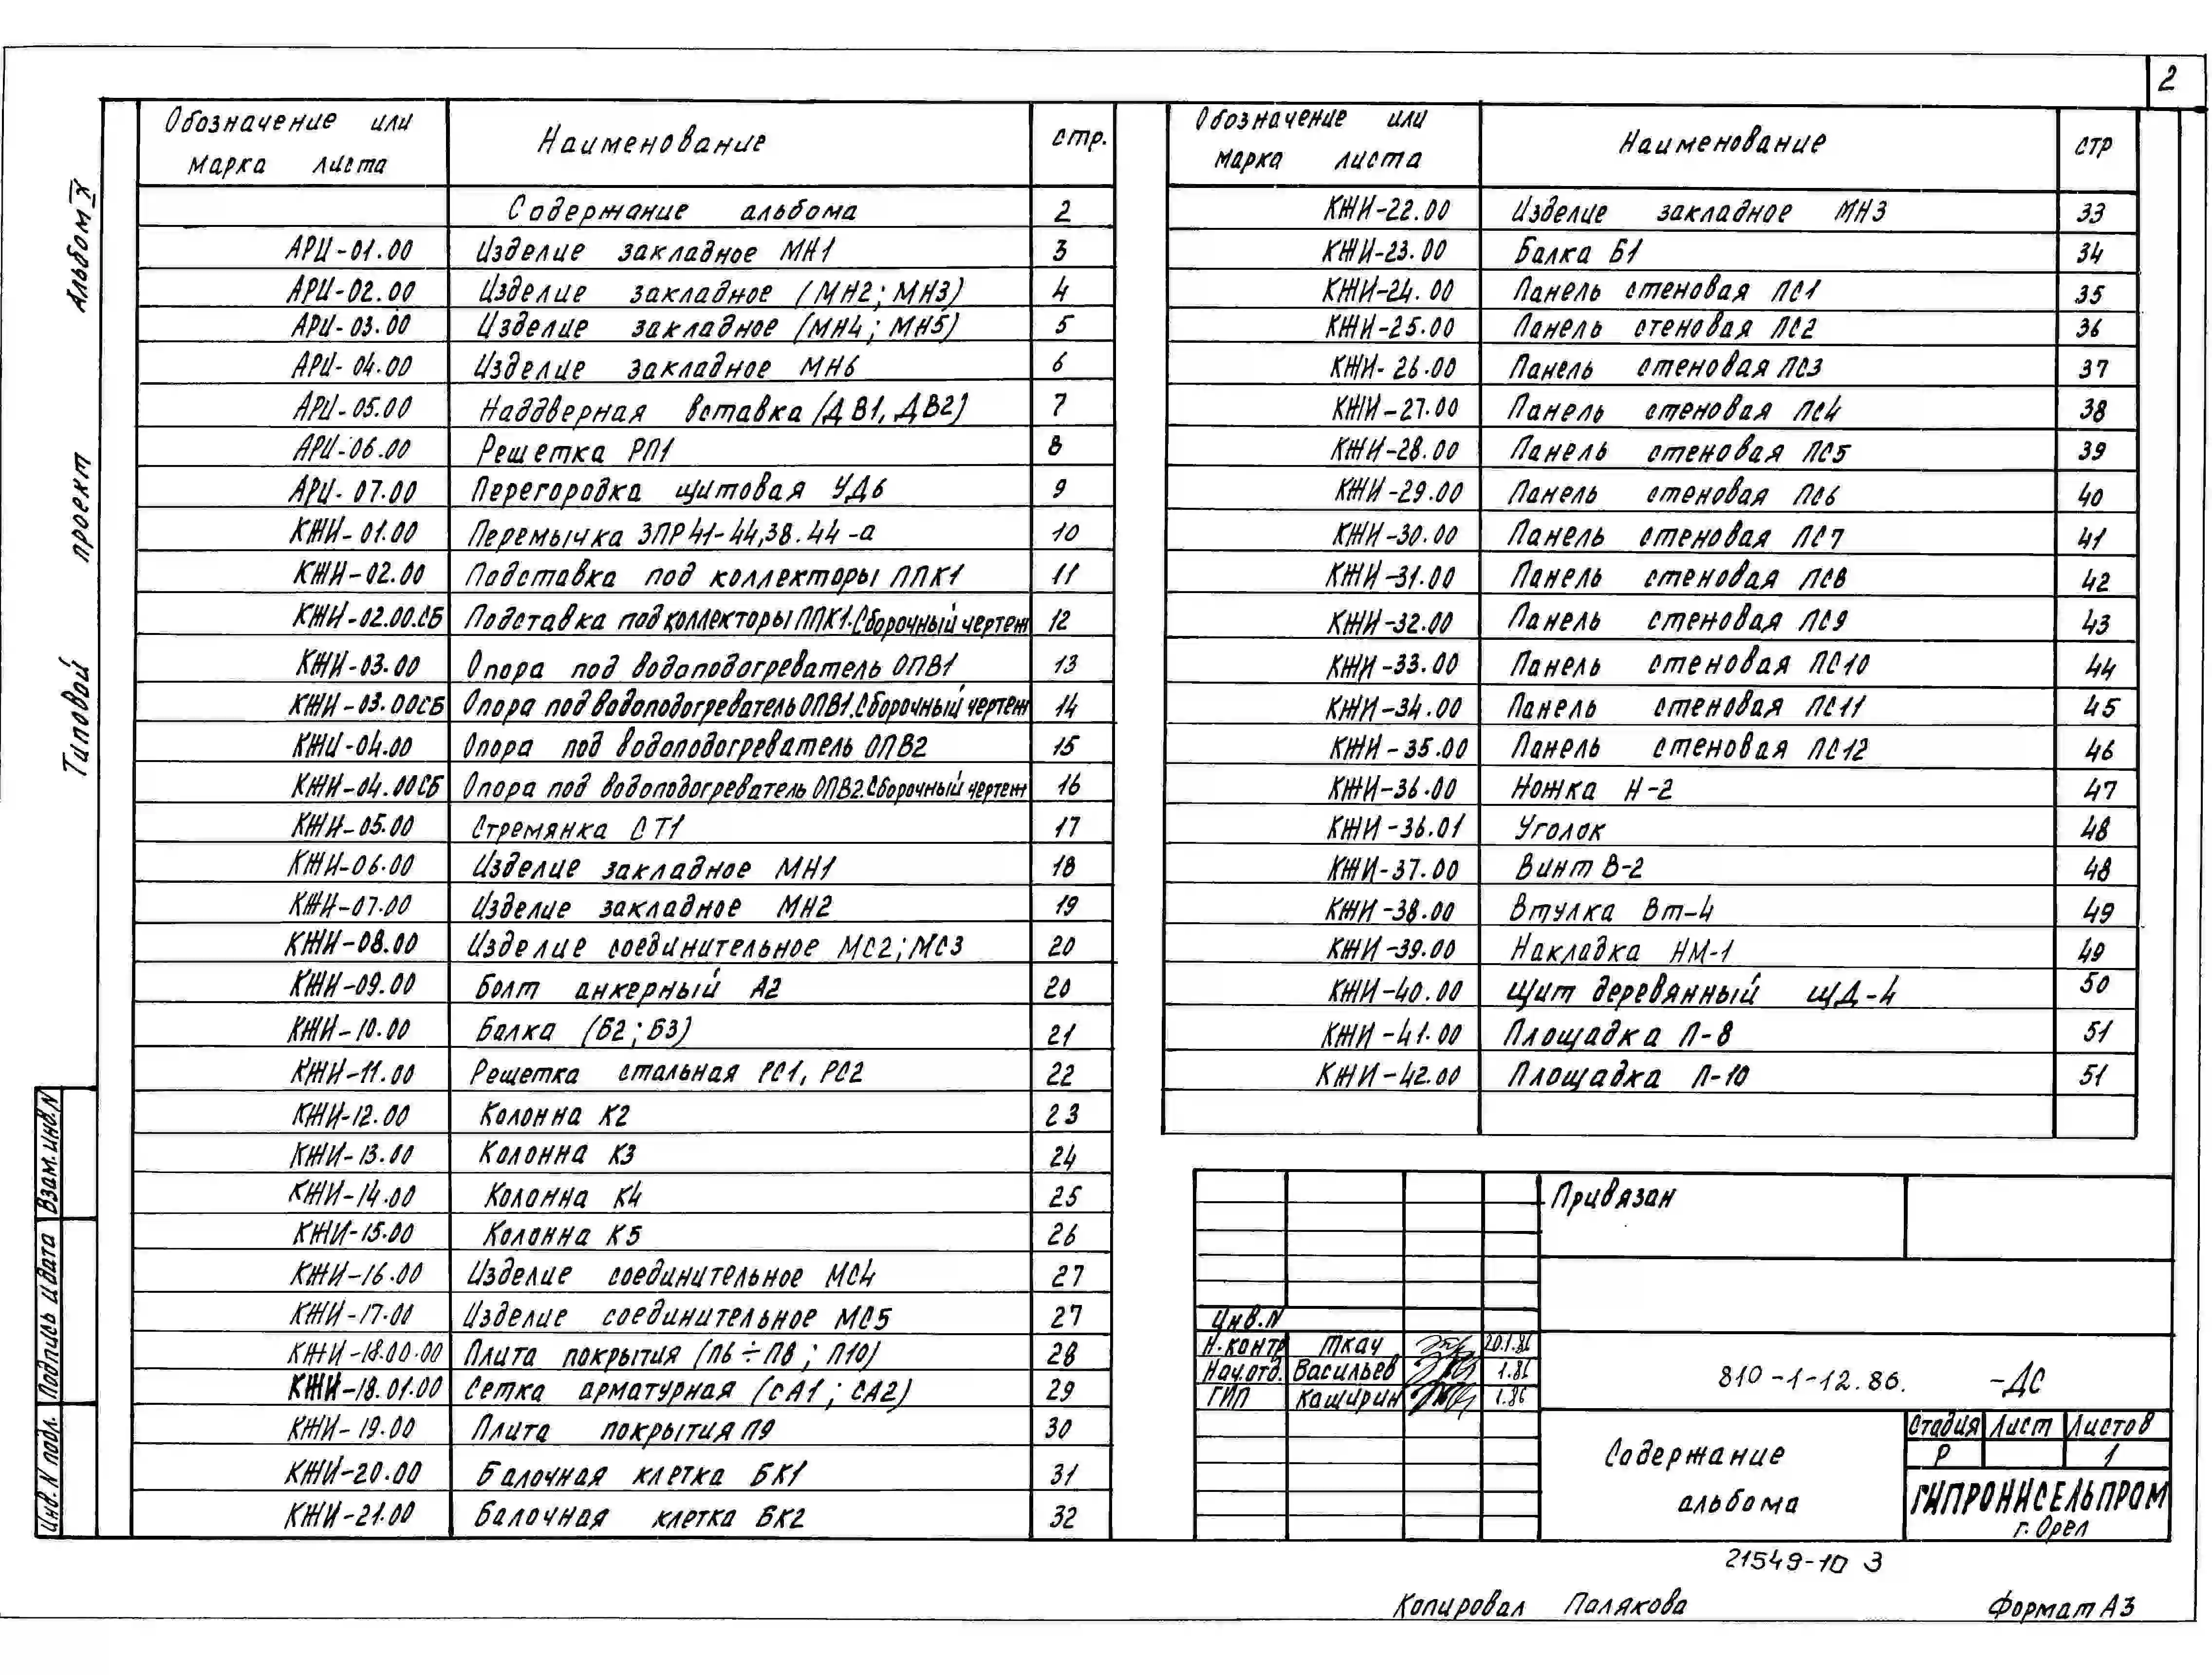 2
Альбом IX
Типовой проект
Обозначение или марка листа Наименование стр.
Содержание альбома 2
АРИ-01.00 Изделие закладное МН1 3
АРИ-02.00 Изделие закладное (МН2; МН3) 4
АРИ-03.00 Изделие закладное (МН4; МН5) 5
АРИ-04.00 Изделие закладное МН6 6
АРИ-05.00 Наддверная вставка (ДВ1, ДВ2) 7
АРИ-06.00 Решетка РП1 8
АРИ-07.00 Перегородка щитовая УД6 9
КЖИ-01.00 Перемычка 3ПР41-44,38.44-а 10
КЖИ-02.00 Подставка под коллекторы ППК1 11
КЖИ-02.00.СБ Подставка под коллекторы ППК1. Сборочный чертеж 12
КЖИ-03.00 Опора под водоподогреватель ОПВ1 13
КЖИ-03.00СБ Опора под водоподогреватель ОПВ1. Сборочный чертеж 14
КЖИ-04.00 Опора под водоподогреватель ОПВ2 15
КЖИ-04.00СБ Опора под водоподогреватель ОПВ2. Сборочный чертеж 16
КЖИ-05.00 Стремянка СТ1 17
КЖИ-06.00 Изделие закладное МН1 18
КЖИ-07.00 Изделие закладное МН2 19
КЖИ-08.00 Изделие соединительное МС2; МС3 20
КЖИ-09.00 Болт анкерный А2 20
КЖИ-10.00 Балка (Б2; Б3) 21
КЖИ-11.00 Решетка стальная РС1, РС2 22
КЖИ-12.00 Колонна К2 23
КЖИ-13.00 Колонна К3 24
КЖИ-14.00 Колонна К4 25
КЖИ-15.00 Колонна К5 26
КЖИ-16.00 Изделие соединительное МС4 27
КЖИ-17.00 Изделие соединительное МС5 27
КЖИ-18.00.00 Плита покрытия (П6÷П8; П10) 28
КЖИ-18.01.00 Сетка арматурная (СА1; СА2) 29
КЖИ-19.00 Плита покрытия П9 30
КЖИ-20.00 Балочная клетка БК1 31
КЖИ-21.00 Балочная клетка БК2 32
Обозначение или марка листа Наименование стр
КЖИ-22.00 Изделие закладное МН3 33
КЖИ-23.00 Балка Б1 34
КЖИ-24.00 Панель стеновая ПС1 35
КЖИ-25.00 Панель стеновая ПС2 36
КЖИ-26.00 Панель стеновая ПС3 37
КЖИ-27.00 Панель стеновая ПС4 38
КЖИ-28.00 Панель стеновая ПС5 39
КЖИ-29.00 Панель стеновая ПС6 40
КЖИ-30.00 Панель стеновая ПС7 41
КЖИ-31.00 Панель стеновая ПС8 42
КЖИ-32.00 Панель стеновая ПС9 43
КЖИ-33.00 Панель стеновая ПС10 44
КЖИ-34.00 Панель стеновая ПС11 45
КЖИ-35.00 Панель стеновая ПС12 46
КЖИ-36.00 Ножка Н-2 47
КЖИ-36.01 Уголок 48
КЖИ-37.00 Винт В-2 48
КЖИ-38.00 Втулка Вт-4 49
КЖИ-39.00 Накладка НМ-1 49
КЖИ-40.00 Щит деревянный ЩД-4 50
КЖИ-41.00 Площадка П-8 51
КЖИ-42.00 Площадка П-10 51
Взам. инв. N
Подпись и дата
Инв. N подл.
Привязан
Инв. N
Н.контр Ткач 20.1.86
Нач.отд. Васильев 1.86
ГИП Каширин 1.86
810-1-12.86. -ДС
Содержание альбома
Стадия Лист Листов
Р 1
ГИПРОНИСЕЛЬПРОМ
г. Орел
21549-10 3
Копировал Палякова
Формат А3